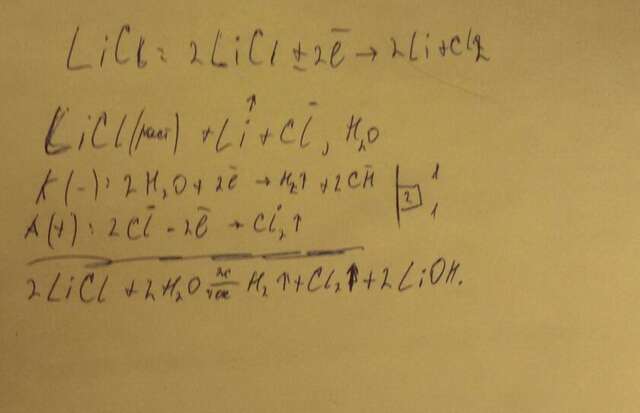 LiCl: 2LiCl ± 2ē → 2Li + Cl2
LiCl(раст) + Li↑ + Cl⁻, H₂O
K(-): 2H₂O + 2ē → H₂↑ + 2CH̄ | 2 | 1
A(+): 2Cl̄ - 2ē → Cl₂↑ 1
2LiCl + 2H₂O эл ток H₂↑ + Cl₂↑ + 2LiOH.